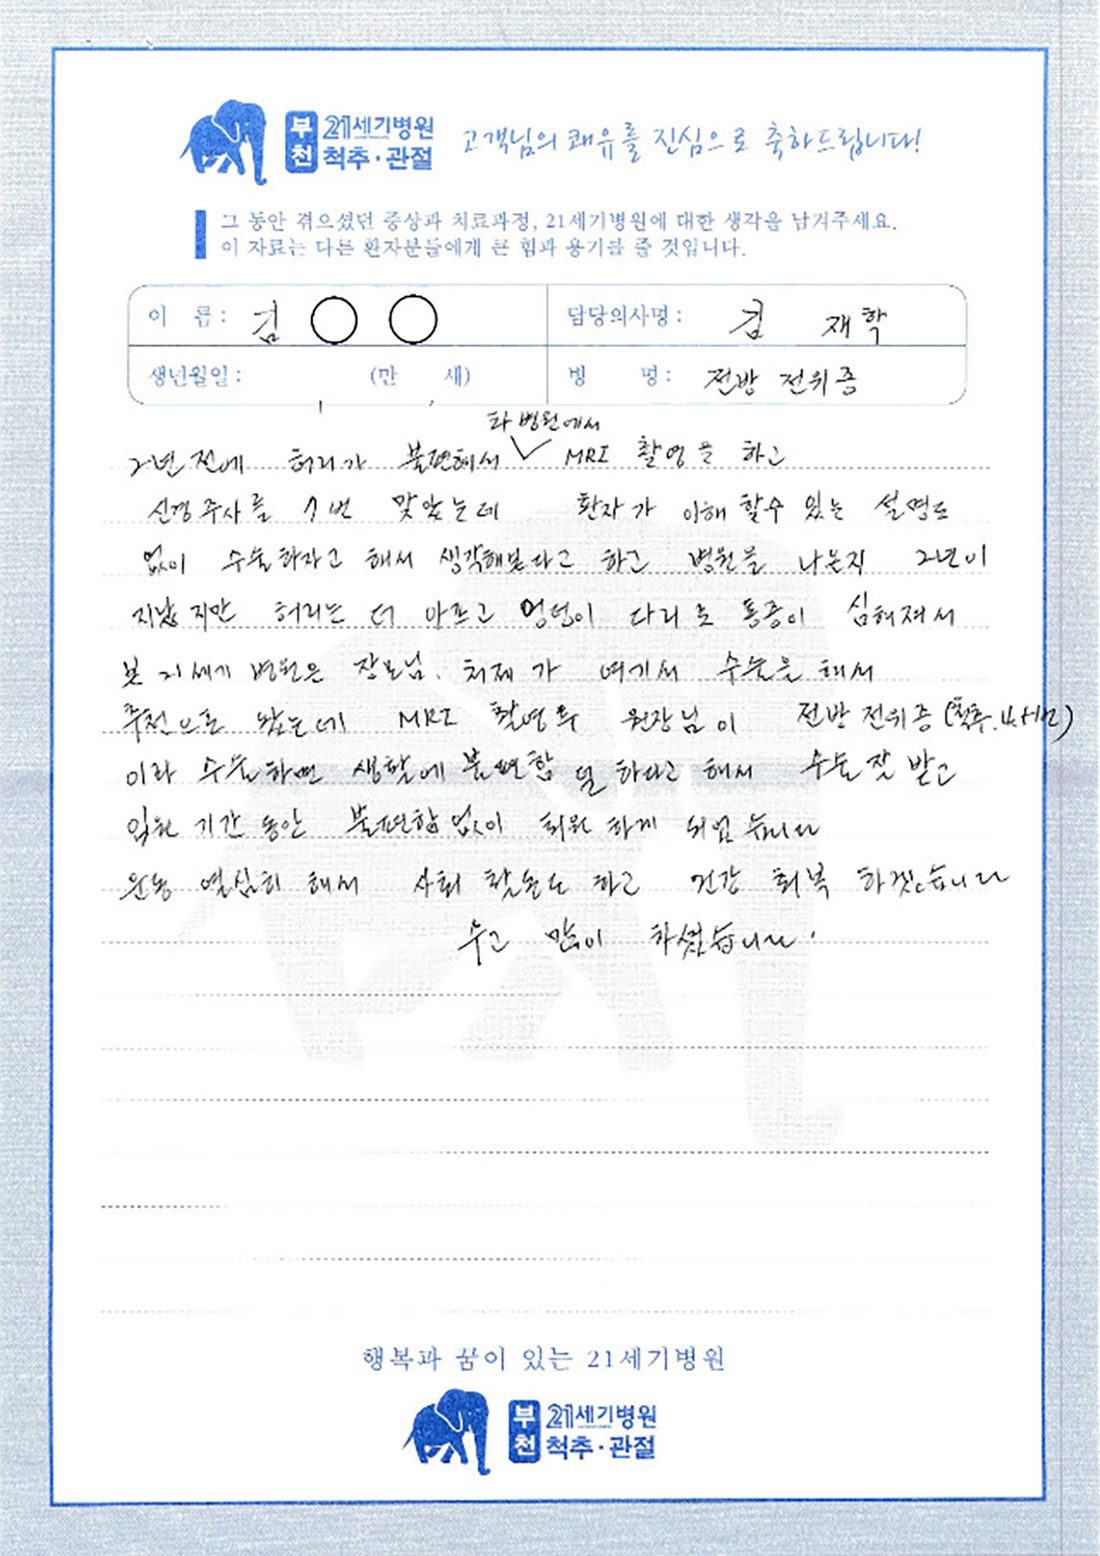 부천 21세기병원 척추·관절 고객님의 쾌유를 진심으로 축하드립니다!
그 동안 겪으셨던 증상과 치료과정, 21세기병원에 대한 생각을 남겨주세요.
이 자료는 다른 환자분들에게 큰 힘과 용기를 줄 것입니다.
이 름 : 김 ○ ○ 담당의사명 : 김 재학
생년월일 : (만 세) 병 명 : 전방 전위증
타 병원에서
2년 전에 허리가 불편해서 ∨ MRI 촬영을 하고
신경주사를 7번 맞았는데 환자가 이해 할수 있는 설명도
없이 수술하자고 해서 생각해본다고 하고 병원을 나온지 2년이
지났지만 허리는 더 아프고 엉덩이 다리로 통증이 심해져서
본 21세기 병원은 장모님. 처제가 여기서 수술을 해서
추천으로 왔는데 MRI 촬영후 원장님이 전방 전위증 (척추.4.5번)
이라 수술하면 생활에 불편함 덜 하다고 해서 수술 잘 받고
입원 기간 동안 불편함 없이 퇴원 하게 되었습니다
운동 열심히 해서 사회 활동도 하고 건강 회복 하겠습니다
수고 많이 하셨습니다.
행복과 꿈이 있는 21세기병원
부천 21세기병원 척추·관절